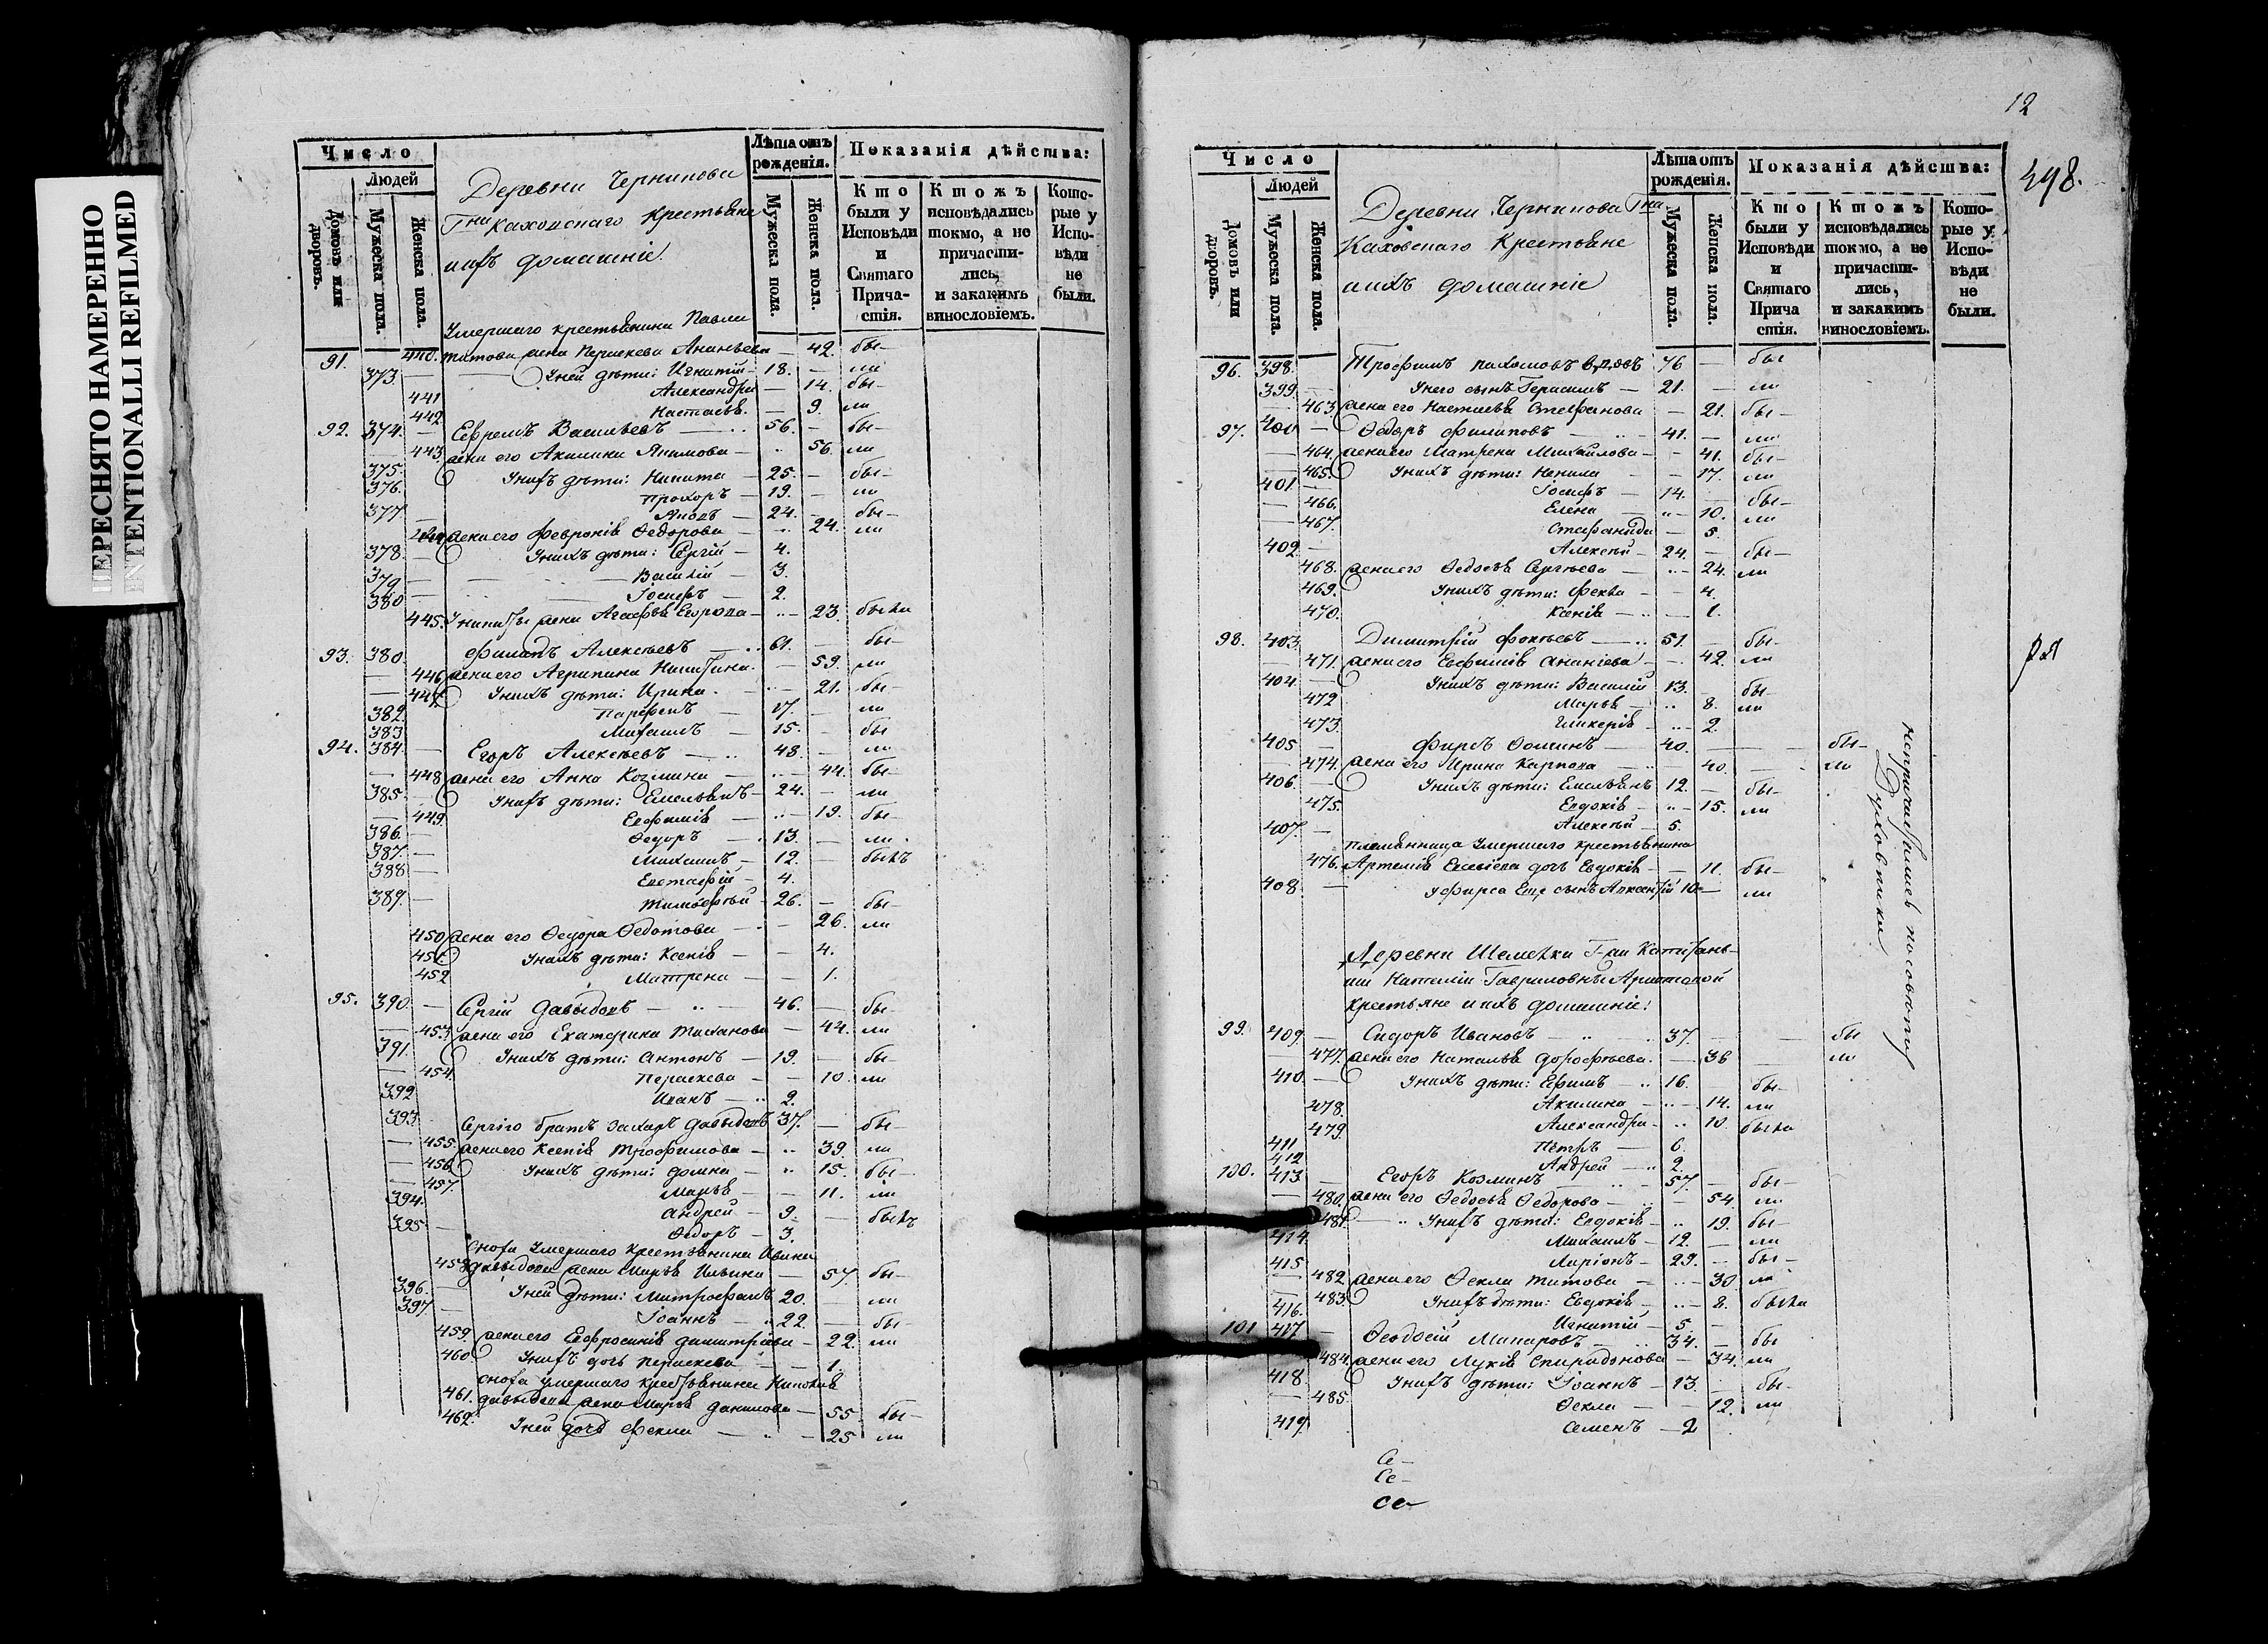 ПЕРЕСНЯТО НАМЕРЕННО
INTENTIONALLI REFILMED
Число
Людей
Домовъ или дворовъ.
Мужеска пола.
Женска пола.
Деревни Чернипова
Гна Каховскаго крестьяне
ихъ домашніе
Лѣта отъ рожденія.
Мужеска пола.
Женска пола.
Показанія дѣйства:
Кто были у Исповѣди и Святаго Прича-стія.
Ктожъ исповѣдались токмо, а не причасти-лись, и закакимъ винословіемъ.
Кото-рые у Испо-вѣди не были.
Умершаго крестьянина Павла
91. 440. Титова жена Параскева Ананьева — 42. бы-
373. — Уней дѣти: Игнатій — 18. — ли
441 Александра — 14. бы-
442 Настасья. — 9. ли
92. 374. — Ефремъ Васильевъ — 56. — бы-
443. жена его Акилина Якимова — 56. ли
375. Унихъ дѣти: Никита — 25. — бы-
376. Прохоръ — 19. — ли
377 — 24. — бы-
жена его Февронія Ѳедорова — 24. ли
378. — Унихъ дѣти: Сергій — 4.
379 — Василій — 3.
380 — Іосифъ — 2.
445. У никиты жена Агафья Егорова — 23. была
93. 380. Филатъ Алексѣевъ — 61. — бы-
446. жена его Агрипина Никитина. — 59. ли
447. Унихъ дѣти: Ирина. — 21. бы-
382. Парфенъ — 17. — ли
383 Михаилъ — 15. — бы
94. 384. — Егоръ Алексѣевъ — 48. — ли
448 жена его Анна Козмина — 44. бы-
385. — Унихъ дѣти: Емельянъ — 24. — ли
449. Евфимія — 19. бы-
386. — Ѳедоръ — 13. — ли
387. — Михаилъ — 12. — былъ
388 — Евстафій — 4.
389. — Тимофѣй — 26. — бы-
450 жена его Ѳедора Ѳедотова — 26. ли
451. Унихъ дѣти: Ксенія — 4.
452 Матрена — 1.
95. 390. — Сергій Давыдовъ — 46. — бы-
453. жена его Екатерина Тиханова — 44. ли
391. Унихъ дѣти: Антонъ — 19. — бы-
454. Параскева — 10. ли
392 Иванъ — 2.
393. Сергіго братъ Захаръ Давыдовъ 37. — бы-
455. жена его Ксенія Трофимова — 39. ли
456. Унихъ дѣти: Домна — 15. бы-
457. Марья — 11. ли
394. Андрей — 9. — былъ
395 — Ѳедоръ — 3.
Сноха умершаго крестьянина Ивана
458. Давыдова жена Марья Ильина — 57. бы-
396. — Уней дѣти: Митрофанъ 20. — ли
397 — Іоаннъ — 22. — бы-
459. жена его Евфросинія Димитріева — 22. ли
460. Унихъ дочь Параскева — 1.
Сноха умершаго крестьянина Николая
461. Давыдова жена Марья Данилова — 55. бы-
462. Уней дочь Фекла — 25 ли
12
498.
Число
Людей
Домовъ или дворовъ.
Мужеска пола.
Женска пола.
Деревни Чернипова Гна
Каховскаго крестьяне
ихъ домашніе
Лѣта отъ рожденія.
Мужеска пола.
Женска пола.
Показанія дѣйства:
Кто были у Исповѣди и Святаго Прича стія.
Ктожъ исповѣдались токмо, а не причасти-лись, и закакимъ винословіемъ.
Кото-рые у Испо-вѣди не были.
96. 398. Трофимъ Пахомовъ вдовъ 76 — бы
399. — Унего сынъ Герасимъ — 21. — ли
463. жена его Настасья Стефанова — 21. бы-
97. 400 — Ѳедоръ Филиповъ — 41. — ли
464. жена его Матрена Михайлова — 41. бы-
465. Унихъ дѣти: Ненила — 17. ли
401 Іосифъ — 14. — бы-
466. Елена — 10. ли
467. Стефанида — 5.
402. — Алексѣй — 24. — бы-
468. жена его Ѳедосья Сергѣева — 24. ли
469. Унихъ дѣти: Фекла — 4.
470. Ксенія — 1.
98. 403. Димитрій Фокѣевъ — 51. — бы-
471. жена его Евфимія Ананіева — 42. ли
404. — Унихъ дѣти: Василій 13. — бы-
472 Марья — 8. ли
473. Гликерія — 2.
405 — Фирсъ Ѳоминъ — 40. — бы-
474. жена его Ирина Карпова — 40. — ли
406. — Унихъ дѣти: Емельянъ 12. — бы-
475. Евдокія — 15. ли
407. — Алексѣй — 5.
племянница умершаго крестьянина
476. Артемія дочь Евдокія — 11. бы-
408. — Уфирса Еще сынъ 10 — ли
Духовника
Деревни Шелехи Г-жи Капитань-
ши Наталіи Гавриловны
крестьяне и ихъ домашніе:
99. 409. — Сидоръ Ивановъ — 37. — бы
477. жена его Наталья Дорофѣева. — 36 — ли
410. — Унихъ дѣти: Ефимъ — 16. — бы-
478. Акилина — 14. ли
479. Александра — 10. была
411 Петръ — 6.
412 Андрей — 2.
100. 413. — Егоръ Козминъ — 57. — бы-
480. жена его Ѳедосья Ѳедорова — 54. ли
481. Унихъ дѣти: Евдокія — 19. бы-
414. Михаилъ — 12. — ли
415 Ларіонъ — 29. — бы-
482. жена его Ѳекла Титова — 30 ли
483. Унихъ дѣти: Евдокія — 8. была
416. Игнатій — 5 —
101 417. — Ѳеодосій Макаровъ — 34. — бы
484. жена его Лукія Спиридонова — 34. ли
418. Унихъ дѣти: Іоаннъ — 13. — бы-
485. Ѳекла — 12. ли
419. Семенъ — 2
Се-
Се-